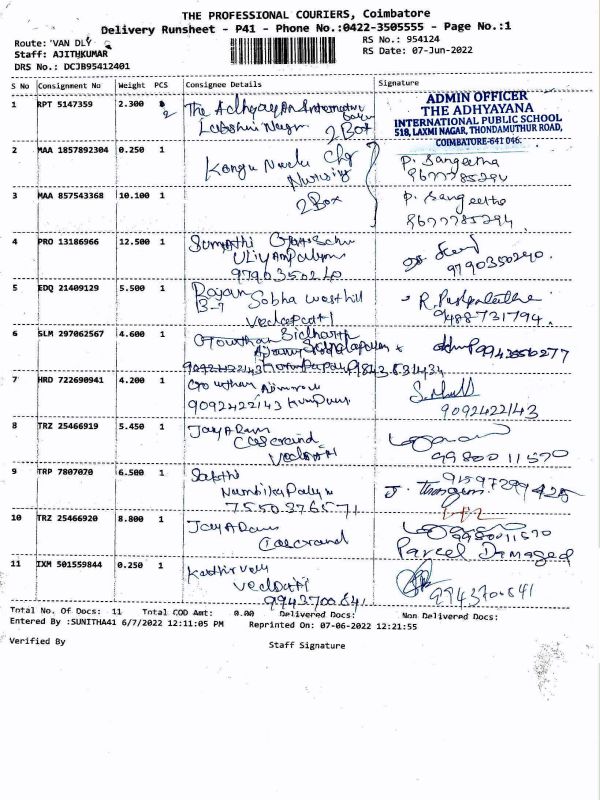 THE PROFESSIONAL COURIERS, Coimbatore
Delivery Runsheet - P41 - Phone No.:0422-3505555 - Page No.:1
Route: 'VAN DLY
RS No.: 954124
Staff: AJITHKUMAR
RS Date: 07-Jun-2022
DRS No.: DCJB95412401
S No Consignment No Weight PCS Consignee Details Signature
1 RPT 5147359 2.300 2 The Adhyayana International
Lakshmi Nagar
2 Box
ADMIN OFFICER
THE ADHYAYANA
INTERNATIONAL PUBLIC SCHOOL
518, LAXMI NAGAR, THONDAMUTHUR ROAD,
COIMBATORE-641 046.
2 MAA 1857892304 0.250 1 Kongu Nadu Clg
Nursing
P. Sangeetha
3 MAA 857543368 10.100 1 2 Box
P. Sangeetha
4 PRO 13186966 12.500 1 Sumathi
Uliyampalayam
9790350240
9790350240.
5 EDQ 21409129 5.500 1 Rajan Sobha west hill
B-7
Vedapatti
R. Pushpalatha
9488731794.
6 SLM 297062567 4.600 1 Gowthan Sidharth
9092422143
7 HRD 722690941 4.200 1 Gowthan
9092422143
9092422143
8 TRZ 25466919 5.450 1 Jay A Ram
Casgrand
Vedapatti
9980011570
9 TRP 7807070 6.500 1 Sakthi
Nambikai Palayam
7550376571
10 TRZ 25466920 8.800 1 Jay A Ram
Casgrand
9980011570
Parcel Damaged
11 IXM 501559844 0.250 1 Kadhirvel
Vedapatti
9943700841
9943700841
Total No. Of Docs: 11 Total COD Amt: 0.00 Delivered Docs: Non Delivered Docs:
Entered By :SUNITHA41 6/7/2022 12:11:05 PM Reprinted On: 07-06-2022 12:21:55
Verified By Staff Signature